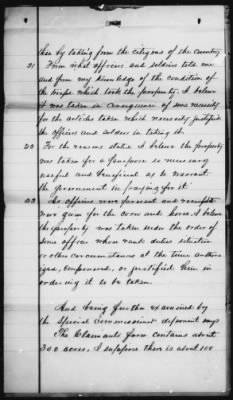 then by taking from the citizens of the country
21 From what officers and soldiers told me
and from my knowledge of the condition of
the troops which took the property I believe
it was taken in consequence of some necessity
for the articles taken which necessity justifies
the officers and soldiers in taking it.
22 For the reasons stated I believe the property
was taken for a purpose so necessary
useful and beneficial as to warrant
the government in paying for it.
23 No officers were present and receipts
was given for the corn and horse. I believe
the property was taken under the order of
some officer whose rank duties situation
or other circumstances at the time author
ized, empowered, or justified him in
ordering it to be taken.
And being further examined by
the Special Commissioner deponent says
The Claimants farm contains about
300 acres. I suppose there is about 100